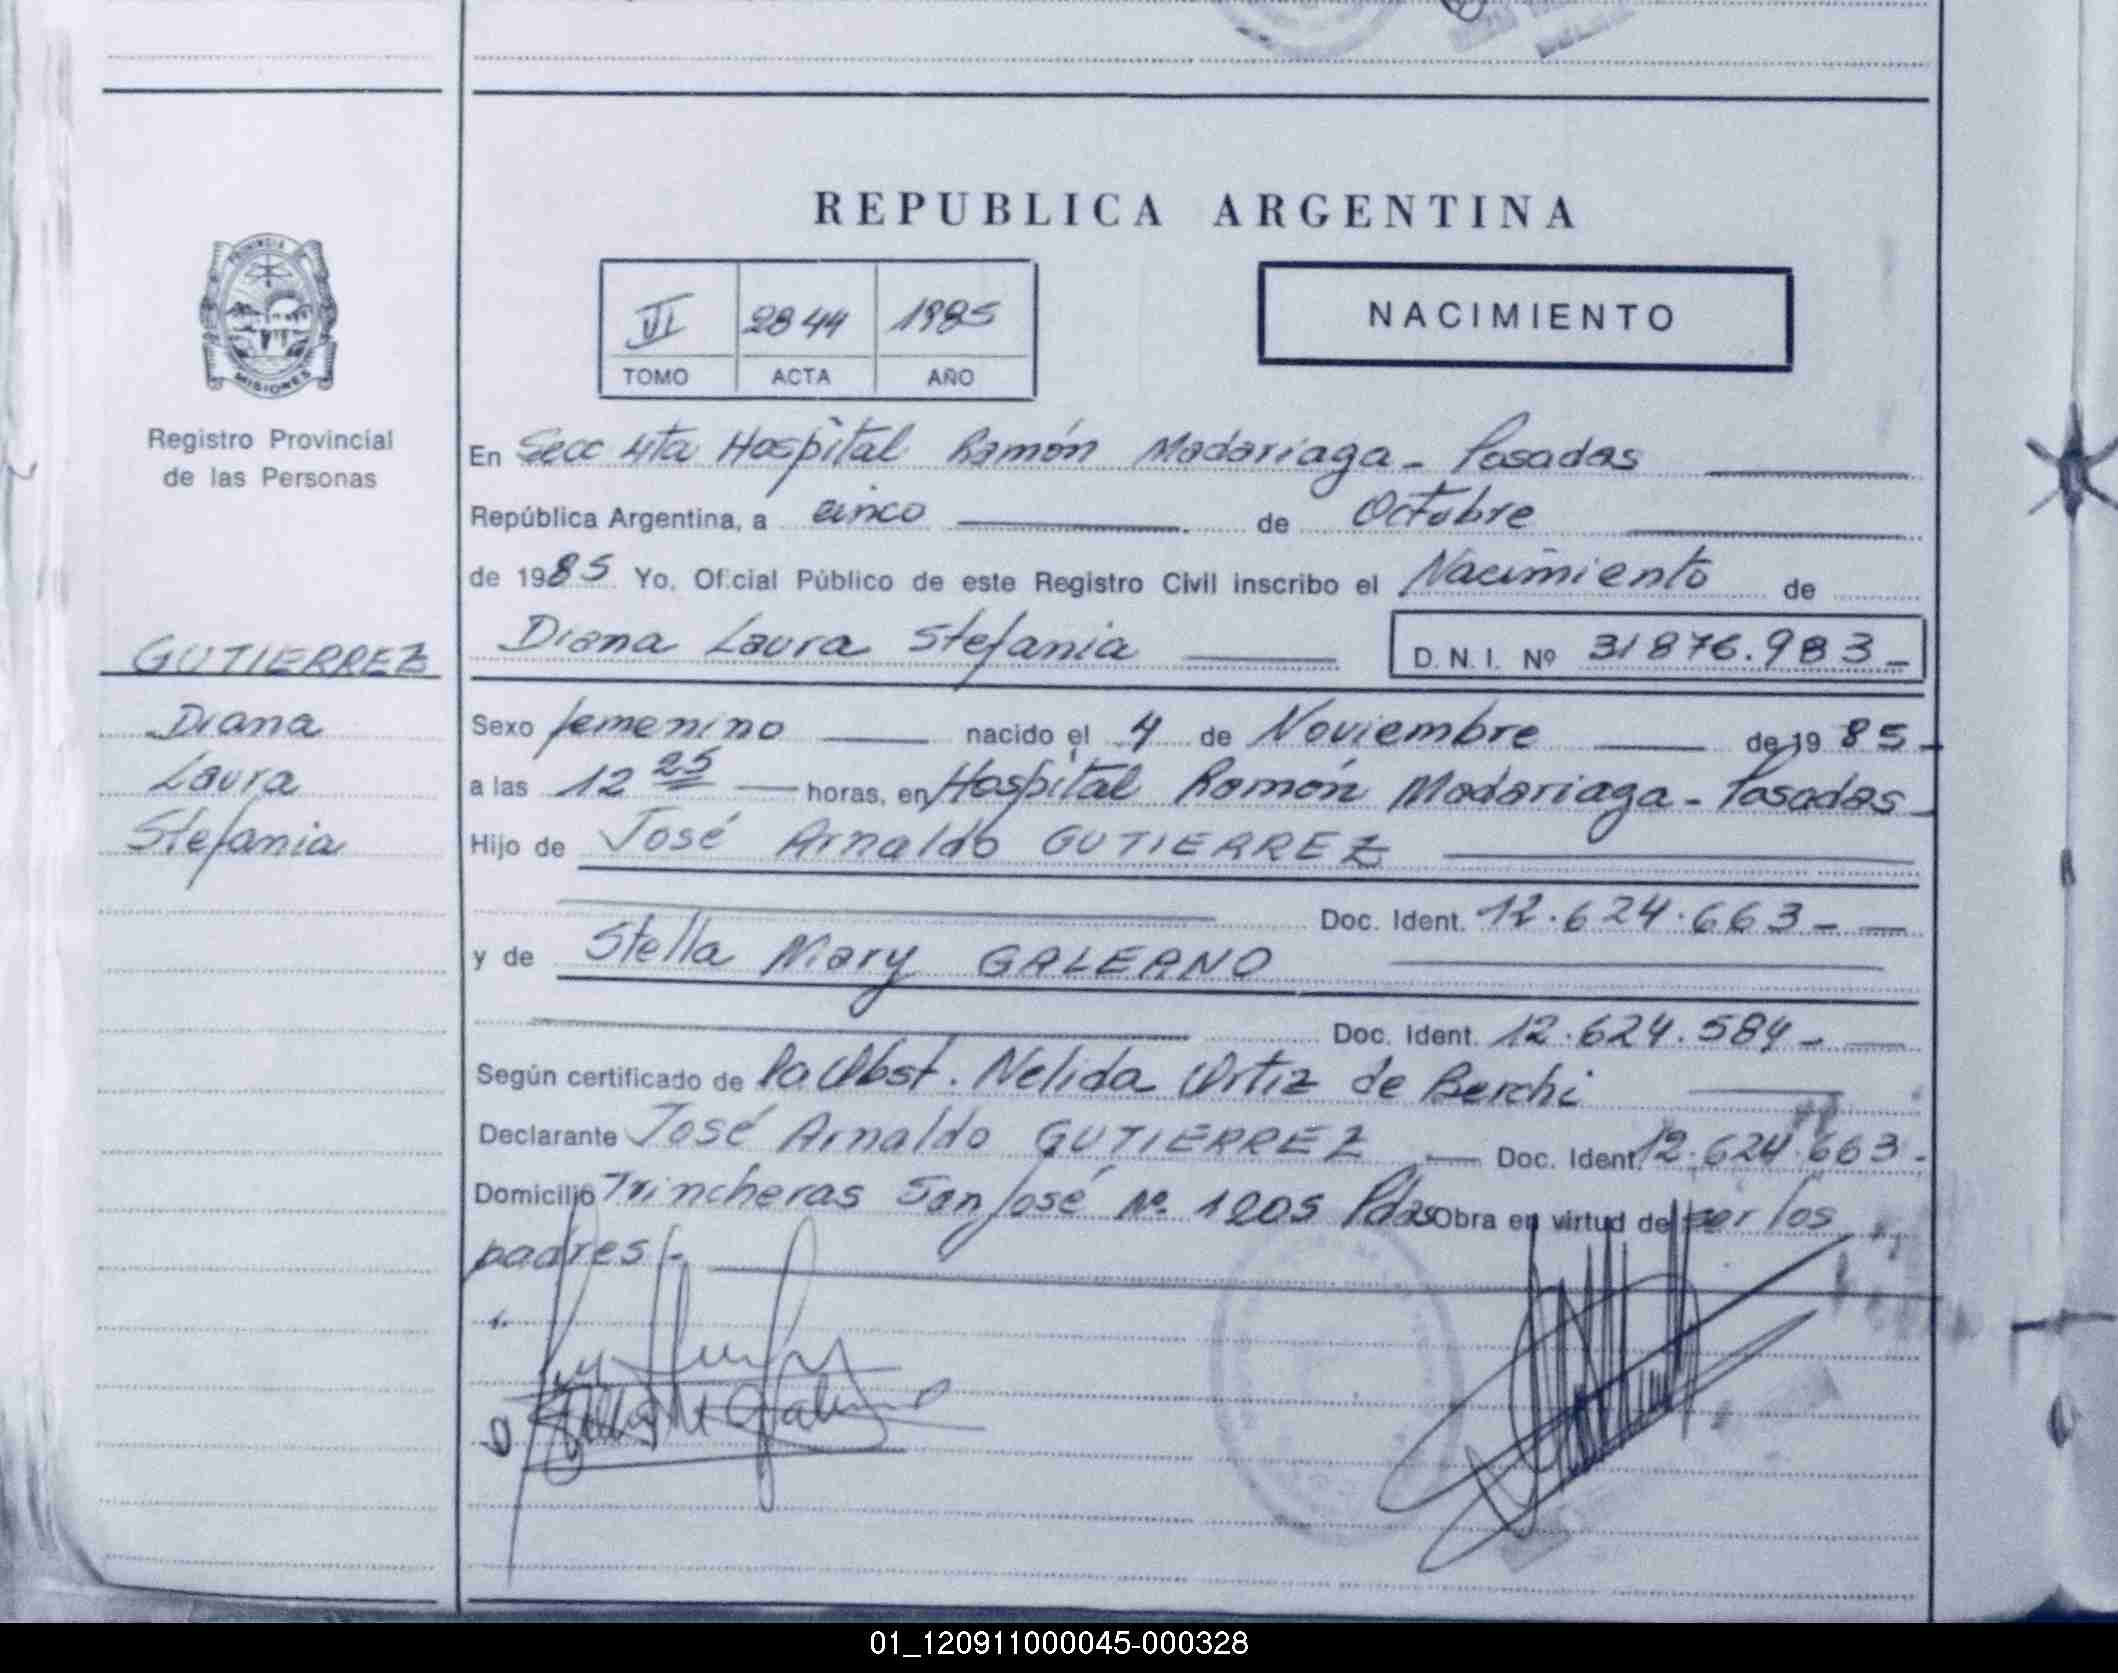 REPUBLICA ARGENTINA
PROVINCIA
MISIONES
Registro Provincial
de las Personas
VI 2844 1985
TOMO ACTA AÑO
NACIMIENTO
En Secc 4ta Hospital Ramón Madariaga - Posadas
República Argentina, a cinco de Octubre
de 1985 Yo, Oficial Público de este Registro Civil inscribo el Nacimiento de
Diana Laura Stefania D.N.I. Nº 31876.983-
GUTIERREZ
Diana
Laura
Stefania
Sexo femenino nacido el 4 de Noviembre de 1985-
a las 12 25 horas, en Hospital Ramón Madariaga - Posadas-
Hijo de José Arnaldo GUTIERREZ
Doc. Ident. 12.624.663-
y de Stella Mary GALEANO
Doc. Ident. 12.624.584-
Según certificado de la Obst. Nelida Ortiz de Berchi
Declarante José Arnaldo GUTIERREZ Doc. Ident. 12.624.663.
Domicilio Trincheras San José Nº 1205 Pdas Obra en virtud de ser los
padres.-
01_120911000045-000328